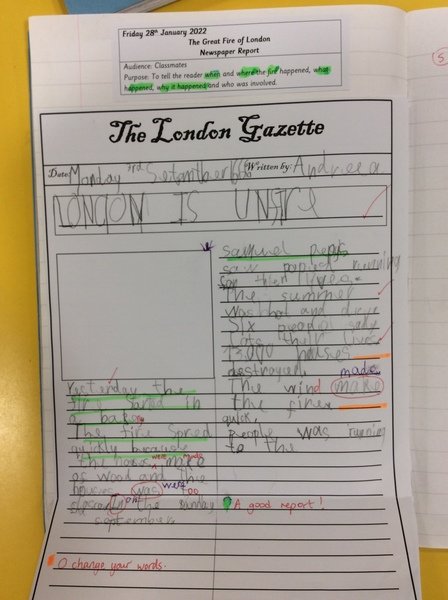 Friday 28th January 2022
The Great Fire of London
Newspaper Report
Audience: Classmates
Purpose: To tell the reader when and where the fire happened, what
happened, why it happened and who was involved.
The London Gazette
Date: Monday 3rd Written by: Andreea
LONDON IS
Yesterday the
fire Sarted in
a
The fire Spred
quickly because
the houses were made
of wood and the
houses was were too
on the Sunday
september
Samuel pepys
saw running
for their
The summer
was hot and
Six
lost their lives
13,000 houses
destroyed.
The wind make made
the fire
quick.
People was running
to the
A good report!
O change your words.
5